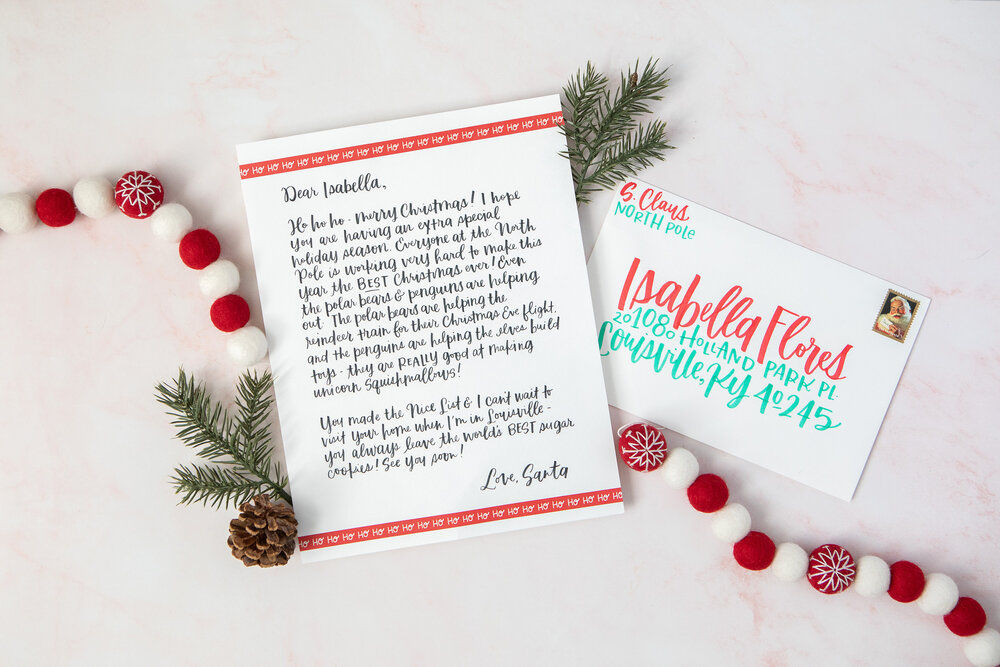 HO HO HO HO HO HO HO HO HO HO HO HO HO HO HO HO HO HO
Dear Isabella,
Ho ho ho - Merry Christmas! I hope
you are having an extra special
holiday season. Everyone at the North
Pole is working very hard to make this
year the BEST Christmas ever! Even
the polar bears & penguins are helping
out. The polar bears are helping the
reindeer train for their Christmas Eve flight,
and the penguins are helping the elves build
toys - they are REALLY good at making
unicorn Squishmallows!
You made the Nice List & I can't wait to
visit your home when I'm in Louisville -
you always leave the world's BEST sugar
cookies! See you soon!
Love, Santa
HO HO HO HO HO HO HO HO HO HO HO HO HO HO HO HO HO HO
S. Claus
NORTH POLE
Isabella Flores
201080 HOLLAND PARK PL.
Louisville, KY 40245